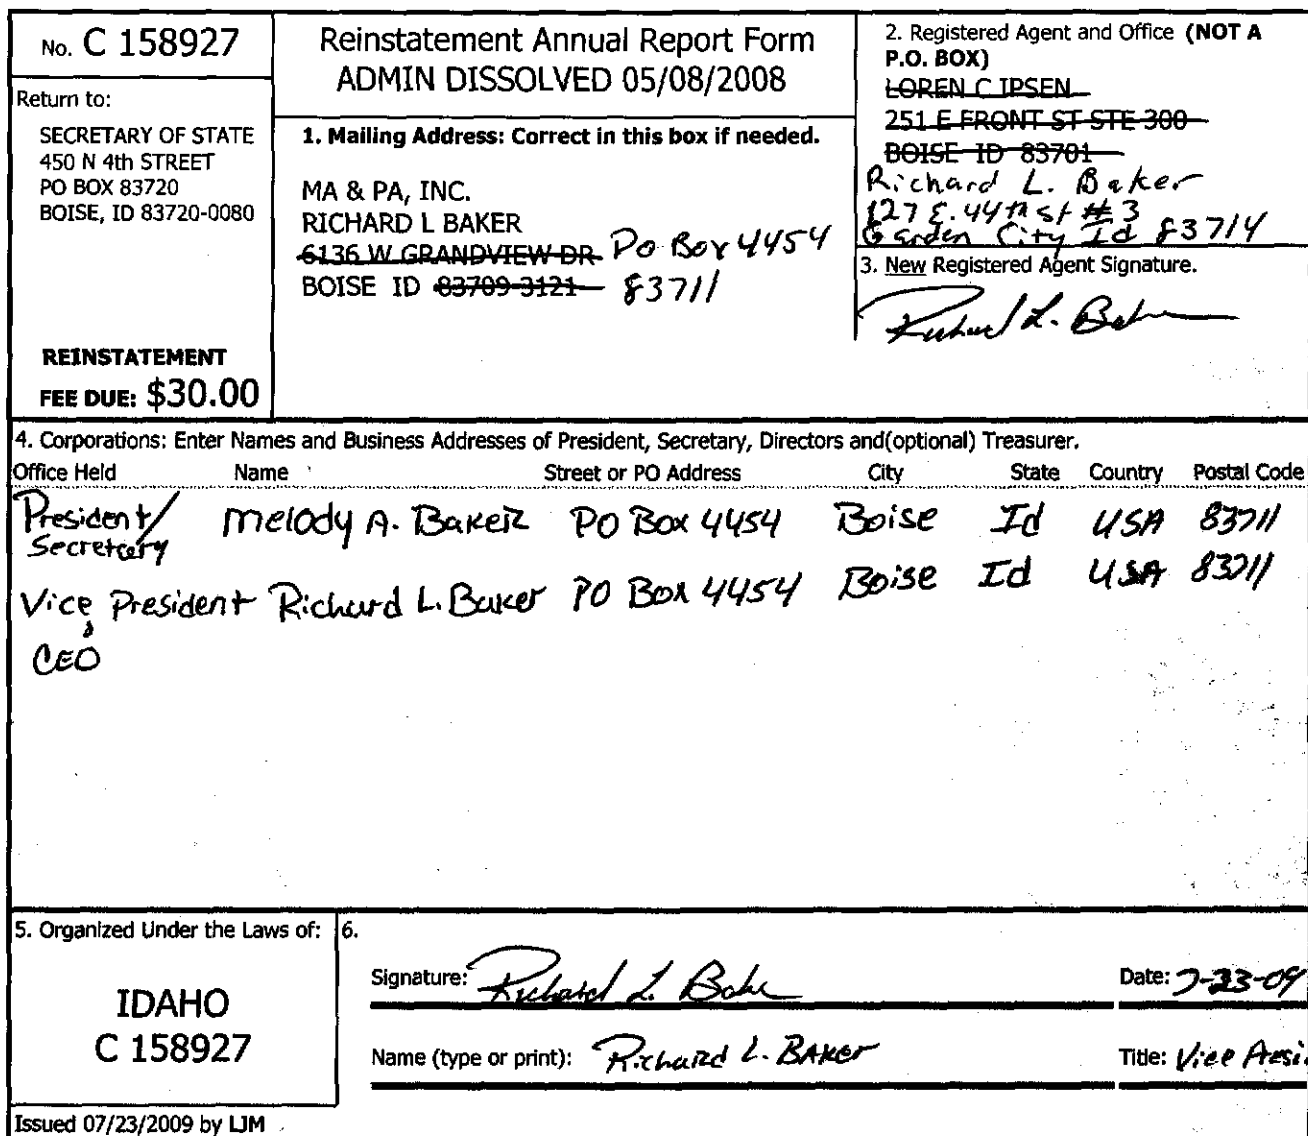 No. C 158927
Return to:
SECRETARY OF STATE
450 N 4th STREET
PO BOX 83720
BOISE, ID 83720-0080
REINSTATEMENT
FEE DUE: $30.00
Reinstatement Annual Report Form
ADMIN DISSOLVED 05/08/2008
1. Mailing Address: Correct in this box if needed.
MA & PA, INC.
RICHARD L BAKER
6136 W GRANDVIEW DR PO Box 4454
BOISE ID 83709-3121 83711
2. Registered Agent and Office (NOT A
P.O. BOX)
LOREN C IPSEN
251 E FRONT ST STE 300
BOISE ID 83701
Richard L. Baker
127 E. 44th st # 3
Garden City Id 83714
3. New Registered Agent Signature.
Richard L. Baker
4. Corporations: Enter Names and Business Addresses of President, Secretary, Directors and(optional) Treasurer.
Office Held Name Street or PO Address City State Country Postal Code
President/ Melody A. Baker PO Box 4454 Boise Id USA 83711
Secretary
Vice President Richard L. Baker PO Box 4454 Boise Id USA 83711
&
CEO
5. Organized Under the Laws of:
IDAHO
C 158927
6.
Signature: Richard L. Baker Date: 7-23-09
Name (type or print): Richard L. Baker Title: Vice Presi
Issued 07/23/2009 by LJM